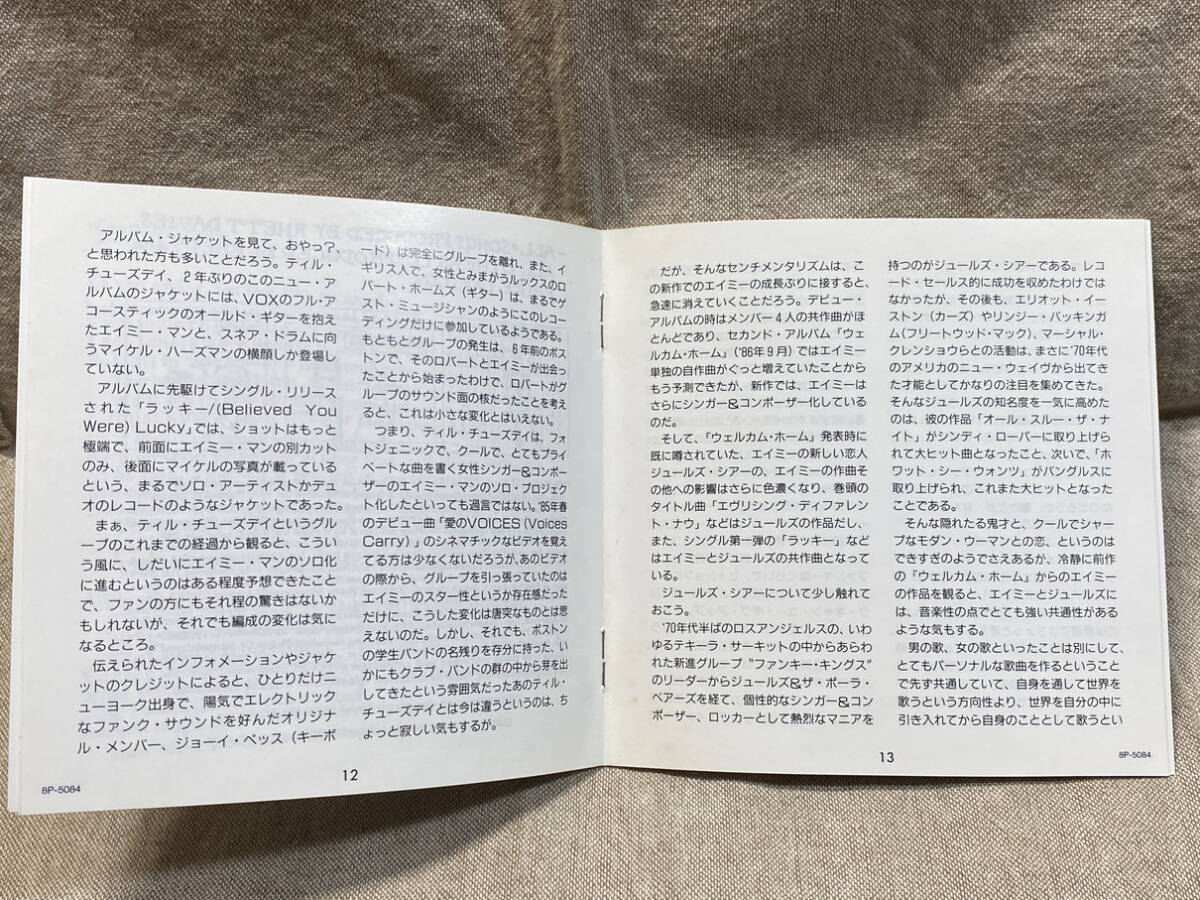 アルバム・ジャケットを見て、おやっ?、
と思われた方も多いことだろう。ティル・
チューズデイ、2年ぶりのこのニュー・ア
ルバムのジャケットには、VOXのフル・ア
コースティックのオールド・ギターを抱え
たエイミー・マンと、スネア・ドラムに向
うマイケル・ハーズマンの横顔しか登場し
ていない。
アルバムに先駆けてシングル・リリース
された「ラッキー/(Believed You
Were) Lucky」では、ショットはもっと
極端で、前面にエイミー・マンの別カット
のみ、後面にマイケルの写真が載っている
という、まるでソロ・アーティストかデュ
オのレコードのようなジャケットであった。
まぁ、ティル・チューズデイというグル
ープのこれまでの経過から観ると、こうい
う風に、しだいにエイミー・マンのソロ化
に進むというのはある程度予想できたこと
で、ファンの方にもそれ程の驚きはないか
もしれないが、それでも編成の変化は気に
なるところ。
伝えられたインフォメーションやジャケ
ットのクレジットによると、ひとりだけニ
ューヨーク出身で、陽気でエレクトリック
なファンク・サウンドを好んだオリジナ
ル・メンバー、ジョーイ・ペッス(キーボ
ード)は完全にグループを離れ、また、イ
ギリス人で、女性とみまがうルックスのロ
バート・ホームズ(ギター)は、まるでゲ
スト・ミュージシャンのようにこのレコー
ディングだけに参加しているようである。
もともとグループの発生は、6年前のボス
トンで、そのロバートとエイミーが出会っ
たことから始まったわけで、ロバートがグ
ループのサウンド面の核だったことを考え
ると、これは小さな変化とはいえない。
つまり、ティル・チューズデイは、フォ
トジェニックで、クールで、とてもプライ
ベートな曲を書く女性シンガー&コンポー
ザーのエイミー・マンのソロ・プロジェク
ト化したといっても過言ではない。'85年春
のデビュー曲「愛のVOICES (Voices
Carry)」のシネマチックなビデオを覚え
てる方は少なくないだろうが、あのビデオ
の際から、グループを引っ張っていたのは
エイミーのスター性という存在感だった
だけに、こうした変化は唐突なものとは思
えないのだ。しかし、それでも、ボストン
の学生バンドの名残りを存分に持った、い
かにもクラブ・バンドの群の中から芽を出
してきたという雰囲気だったあのティル・
チューズデイとは今は違うというのは、ち
ょっと寂しい気もするが。
12
8P-5084
だが、そんなセンチメンタリズムは、こ
の新作でのエイミーの成長ぶりに接すると、
急速に消えていくことだろう。デビュー・
アルバムの時はメンバー4人の共作曲がほ
とんどであり、セカンド・アルバム「ウェ
ルカム・ホーム」('86年9月)ではエイミー
単独の自作曲がぐっと増えていたことから
もう予測できたが、新作では、エイミーは
さらにシンガー&コンポーザー化している
のだ。
そして、「ウェルカム・ホーム」発表時に
既に噂されていた、エイミーの新しい恋人
ジュールズ・シアーの、エイミーの作曲そ
の他への影響はさらに色濃くなり、巻頭の
タイトル曲「エヴリシング・ディファレン
ト・ナウ」などはジュールズの作品だし、
また、シングル第一弾の「ラッキー」など
はエイミーとジュールズの共作曲となって
いる。
ジュールズ・シアーについて少し触れて
おこう。
'70年代半ばのロスアンジェルスの、いわ
ゆるテキーラ・サーキットの中からあらわ
れた新進グループ“ファンキー・キングス”
のリーダーからジュールズ&ザ・ポーラ・
ベアーズを経て、個性的なシンガー&コン
ポーザー、ロッカーとして熱烈なマニアを
持つのがジュールズ・シアーである。レコ
ード・セールス的に成功を収めたわけでは
なかったが、その後も、エリオット・イー
ストン(カーズ)やリンジー・バッキンガ
ム(フリートウッド・マック)、マーシャル・
クレンショウらとの活動は、まさに'70年代
のアメリカのニュー・ウェイヴから出てき
た才能としてかなりの注目を集めてきた。
そんなジュールズの知名度を一気に高めた
のは、彼の作品「オール・スルー・ザ・ナ
イト」がシンディ・ローパーに取り上げら
れて大ヒット曲となったこと、次いで、「ホ
ワット・シー・ウォンツ」がバングルスに
取り上げられ、これまた大ヒットとなった
ことである。
そんな隠れたる鬼才と、クールでシャー
プなモダン・ウーマンとの恋、というのは
できすぎのようでさえあるが、冷静に前作
の「ウェルカム・ホーム」からのエイミー
の作品を観ると、エイミーとジュールズに
は、音楽性の点でとても強い共通性がある
ような気もする。
男の歌、女の歌といったことは別にして、
とてもパーソナルな歌曲を作るということ
で先ず共通していて、自身を通して世界を
歌うという方向性より、世界を自分の中に
引き入れてから自身のこととして歌うとい
13
8P-5084